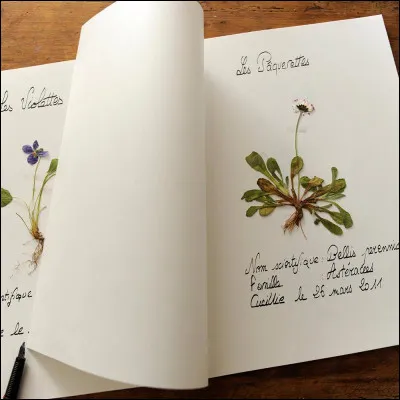 Les Violettes
Les Pâquerettes
Nom scientifique : Bellis perennis
Famille : Astéracées
Cueillie le 26 mars 2011
ntifique
le .